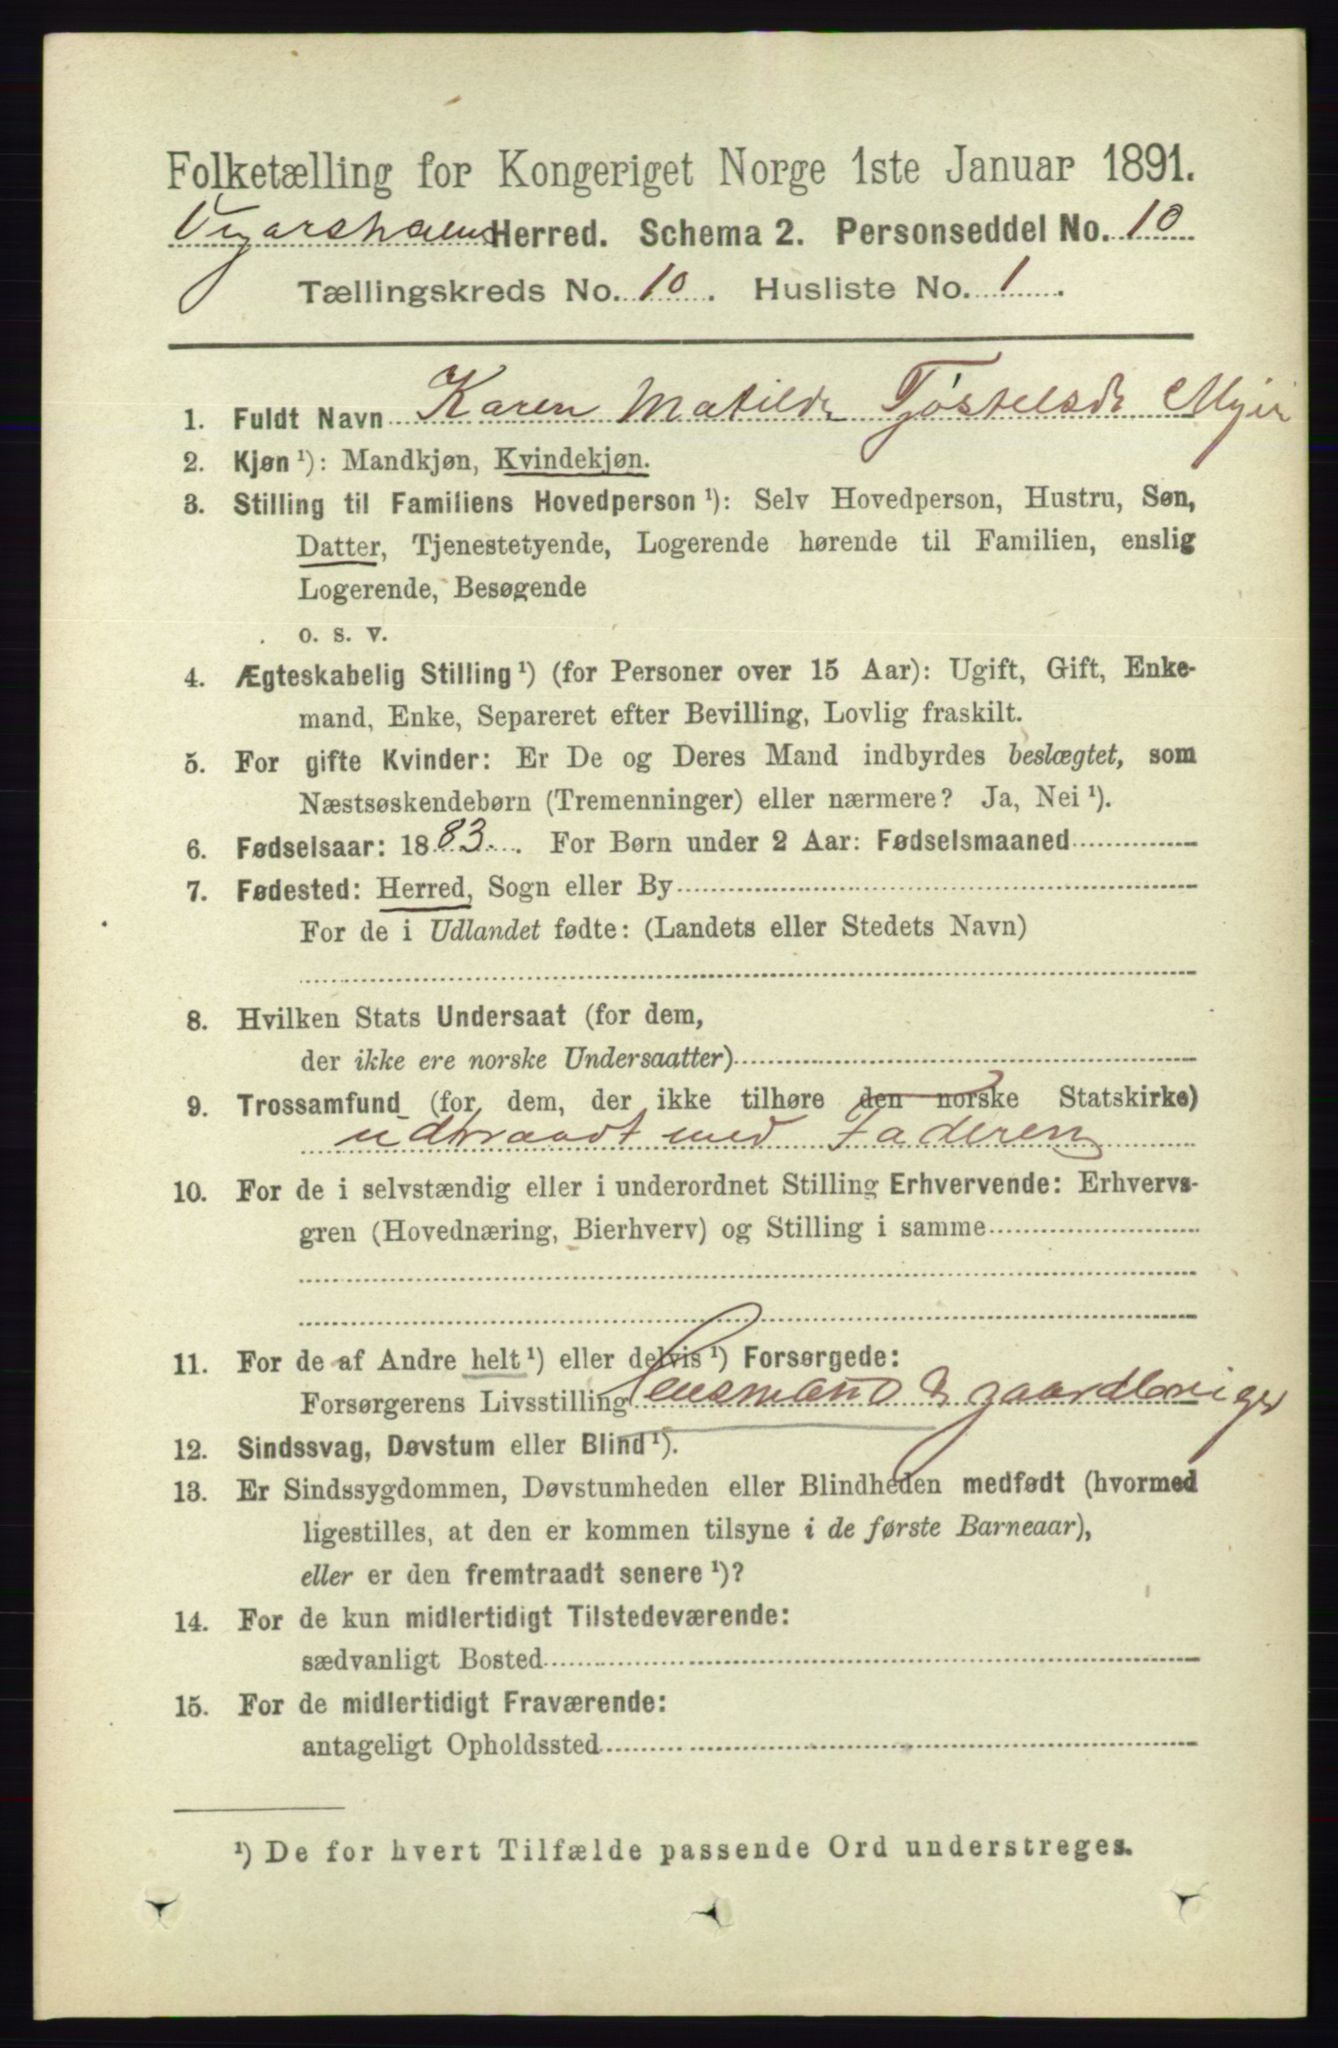 Folketælling for Kongeriget Norge 1ste Januar 1891.
Vegarsheiens Herred. Schema 2. Personseddel No. 10
Tællingskreds No. 10. Husliste No. 1.
1. Fuldt Navn Karen Matilde Tjøstelsd Myre
2. Kjøn ¹): Mandkjøn, Kvindekjøn.
3. Stilling til Familiens Hovedperson ¹): Selv Hovedperson, Hustru, Søn,
Datter, Tjenestetyende, Logerende hørende til Familien, enslig
Logerende, Besøgende
o. s. v.
4. Ægteskabelig Stilling ¹) (for Personer over 15 Aar): Ugift, Gift, Enke-
mand, Enke, Separeret efter Bevilling, Lovlig fraskilt.
5. For gifte Kvinder: Er De og Deres Mand indbyrdes beslægtet, som
Næstsøskendebørn (Tremenninger) eller nærmere? Ja, Nei ¹).
6. Fødselsaar: 1883. For Børn under 2 Aar: Fødselsmaaned
7. Fødested: Herred, Sogn eller By
For de i Udlandet fødte: (Landets eller Stedets Navn)
8. Hvilken Stats Undersaat (for dem,
der ikke ere norske Undersaatter)
9. Trossamfund (for dem, der ikke tilhøre den norske Statskirke)
udtraadt med Faderen
10. For de i selvstændig eller i underordnet Stilling Erhvervende: Erhvervs-
gren (Hovednæring, Bierhverv) og Stilling i samme
11. For de af Andre helt ¹) eller delvis ¹) Forsørgede:
Forsørgerens Livsstilling Lensmand & gaardbruger
12. Sindssvag, Døvstum eller Blind ¹).
13. Er Sindssygdommen, Døvstumheden eller Blindheden medfødt (hvormed
ligestilles, at den er kommen tilsyne i de første Barneaar),
eller er den fremtraadt senere ¹)?
14. For de kun midlertidigt Tilstedeværende:
sædvanligt Bosted
15. For de midlertidigt Fraværende:
antageligt Opholdssted
¹) De for hvert Tilfælde passende Ord understreges.